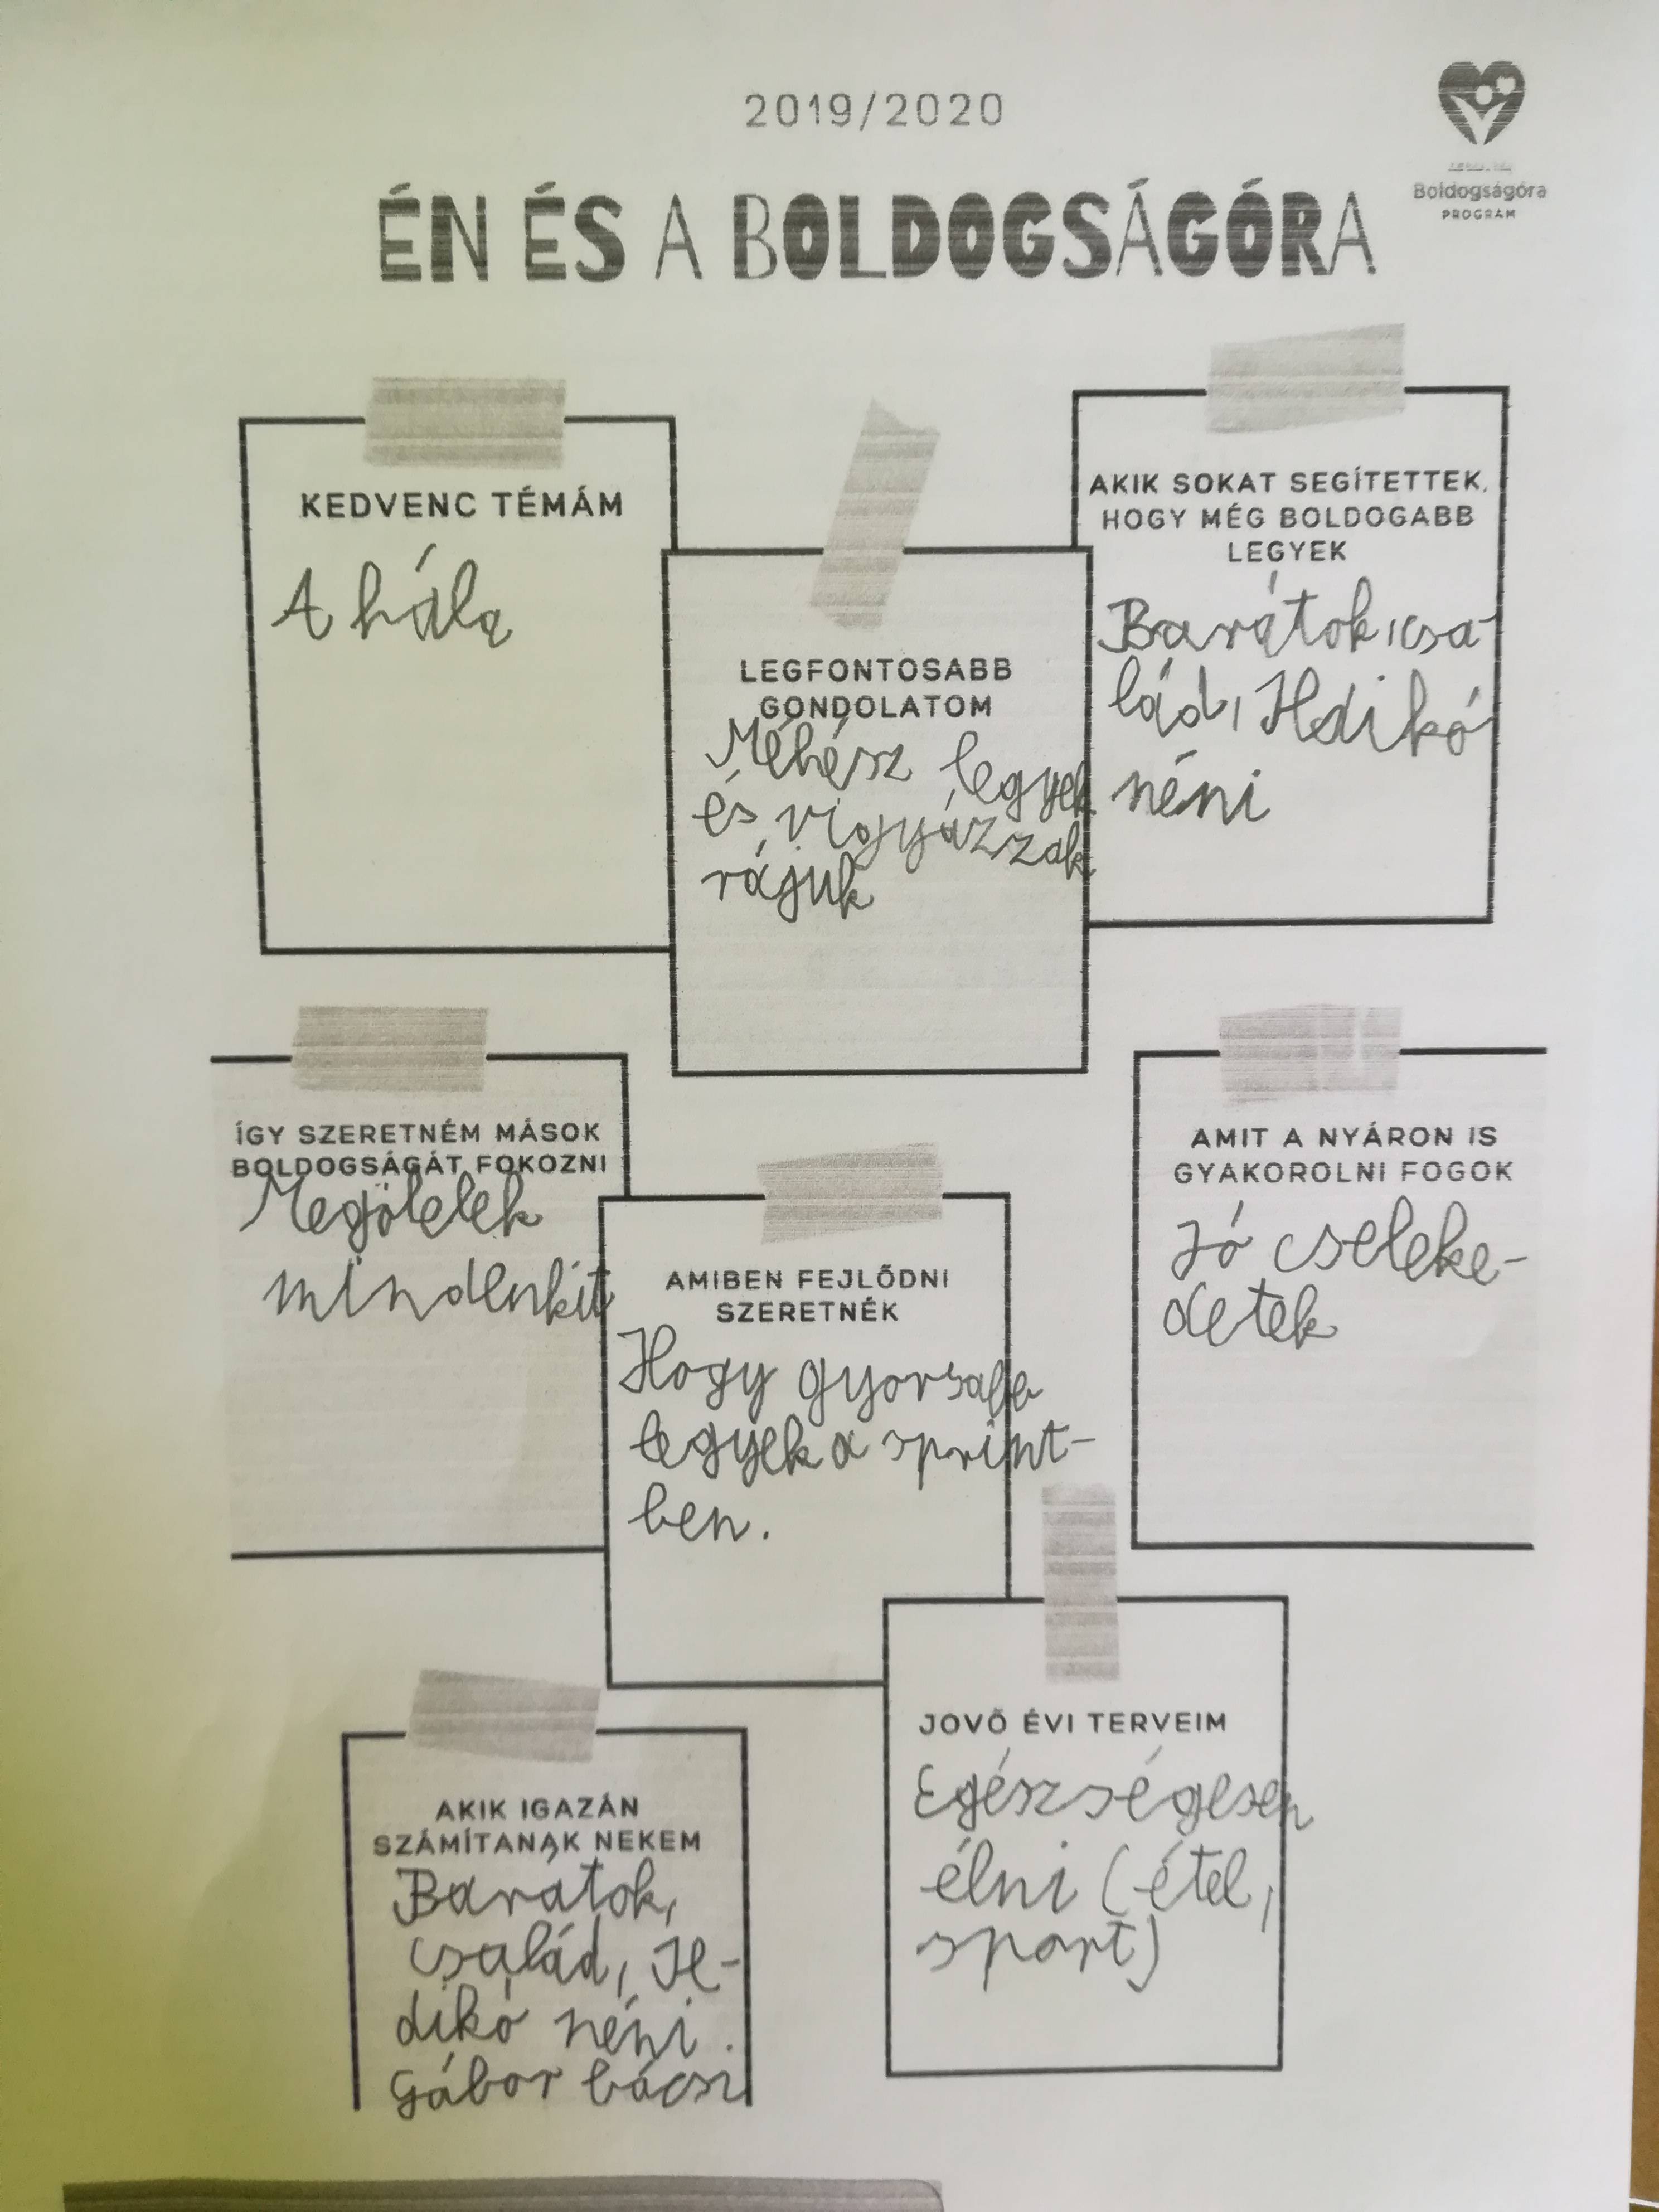 2019/2020
Boldogságóra
PROGRAM
ÉN ÉS A BOLDOGSÁGÓRA
KEDVENC TÉMÁM
A hála
LEGFONTOSABB
GONDOLATOM
Méhész legyek
és vigyázzak
rájuk
AKIK SOKAT SEGÍTETTEK,
HOGY MÉG BOLDOGABB
LEGYEK
Barátok, csa-
lád, Ildikó
néni
ÍGY SZERETNÉM MÁSOK
BOLDOGSÁGÁT FOKOZNI
Megölelek
mindenkit
AMIBEN FEJLŐDNI
SZERETNÉK
Hogy gyorsabb
legyek a sprint-
ben.
AMIT A NYÁRON IS
GYAKOROLNI FOGOK
Jó cseleke-
detek
AKIK IGAZÁN
SZÁMÍTANAK NEKEM
Barátok,
család, Il-
dikó néni
Gábor bácsi
JOVŐ ÉVI TERVEIM
Egészségesen
élni (étel,
sport)